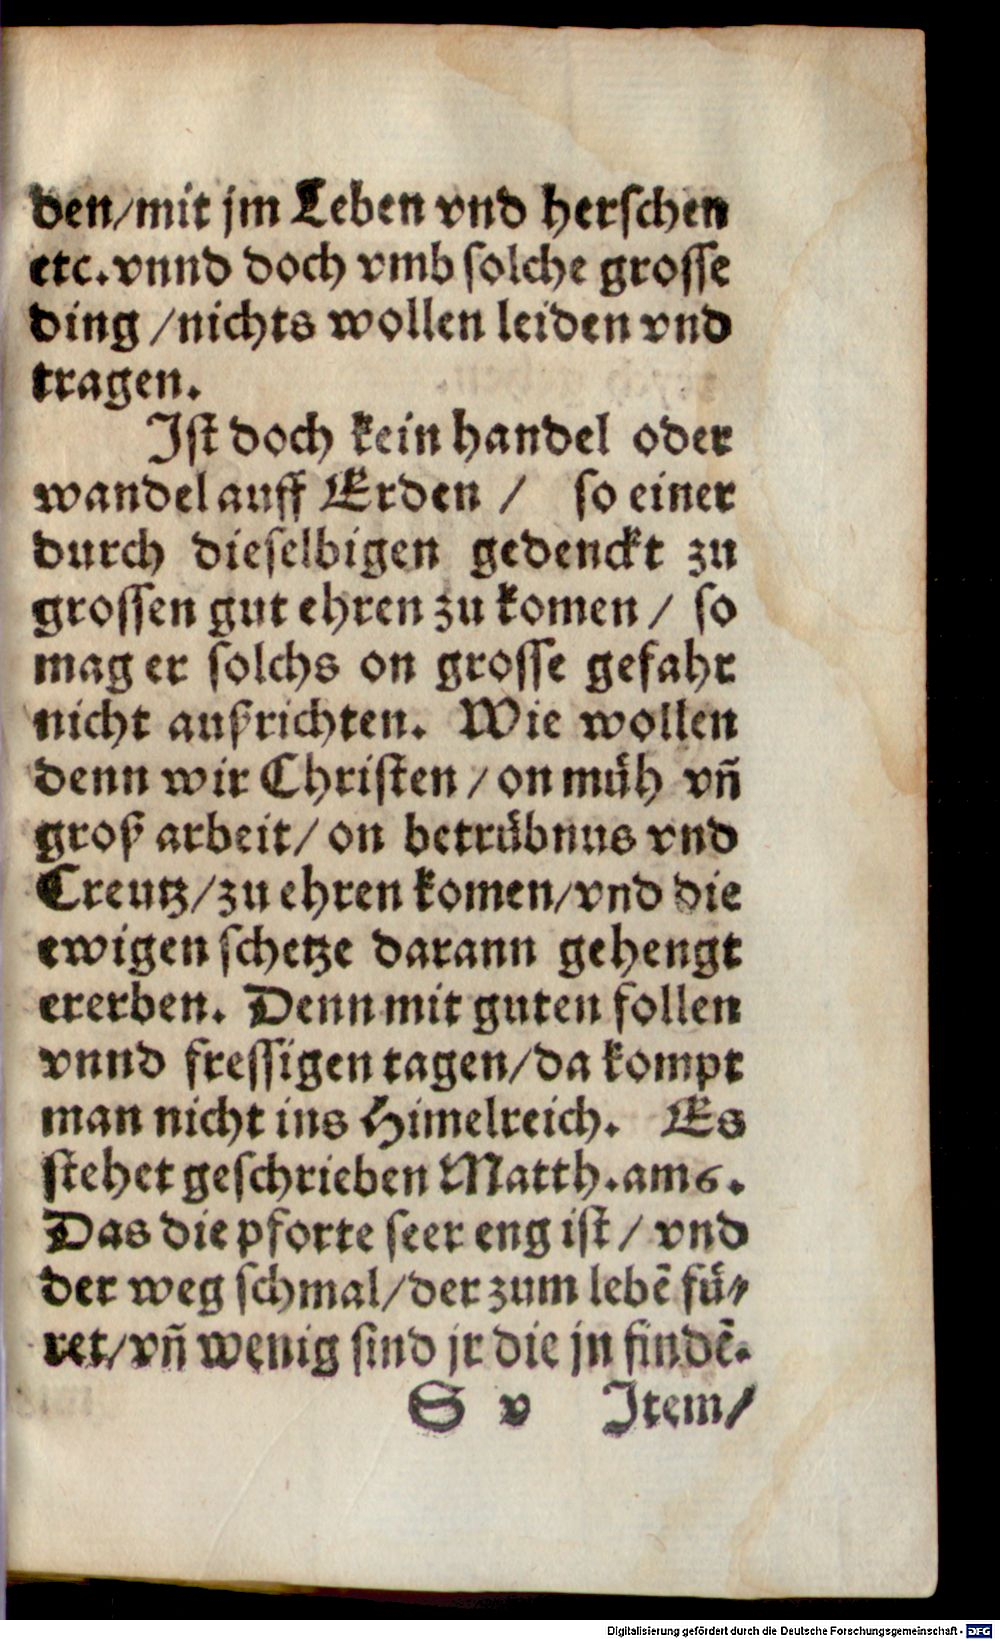 den/mit jm Leben vnd herschen
etc. vnnd doch vmb solche grosse
ding /nichts wollen leiden vnd
tragen.
Ist doch kein handel oder
wandel auff Erden / so einer
durch dieselbigen gedenckt zu
grossen gut ehren zu komen / so
mag er solchs on grosse gefahr
nicht außrichten. Wie wollen
denn wir Christen / on müh vñ
groß arbeit/ on betrübnus vnd
Creutz/zu ehren komen/vnd die
ewigen schetze darann gehengt
ererben. Denn mit guten follen
vnnd fressigen tagen/da kompt
man nicht ins Himelreich. Es
stehet geschrieben Matth. am 6.
Das die pforte seer eng ist / vnd
der weg schmal/der zum lebẽ fü⸗
ret/vñ wenig sind jr die jn findẽ.
S v Item/
Digitalisierung gefördert durch die Deutsche Forschungsgemeinschaft - DFG